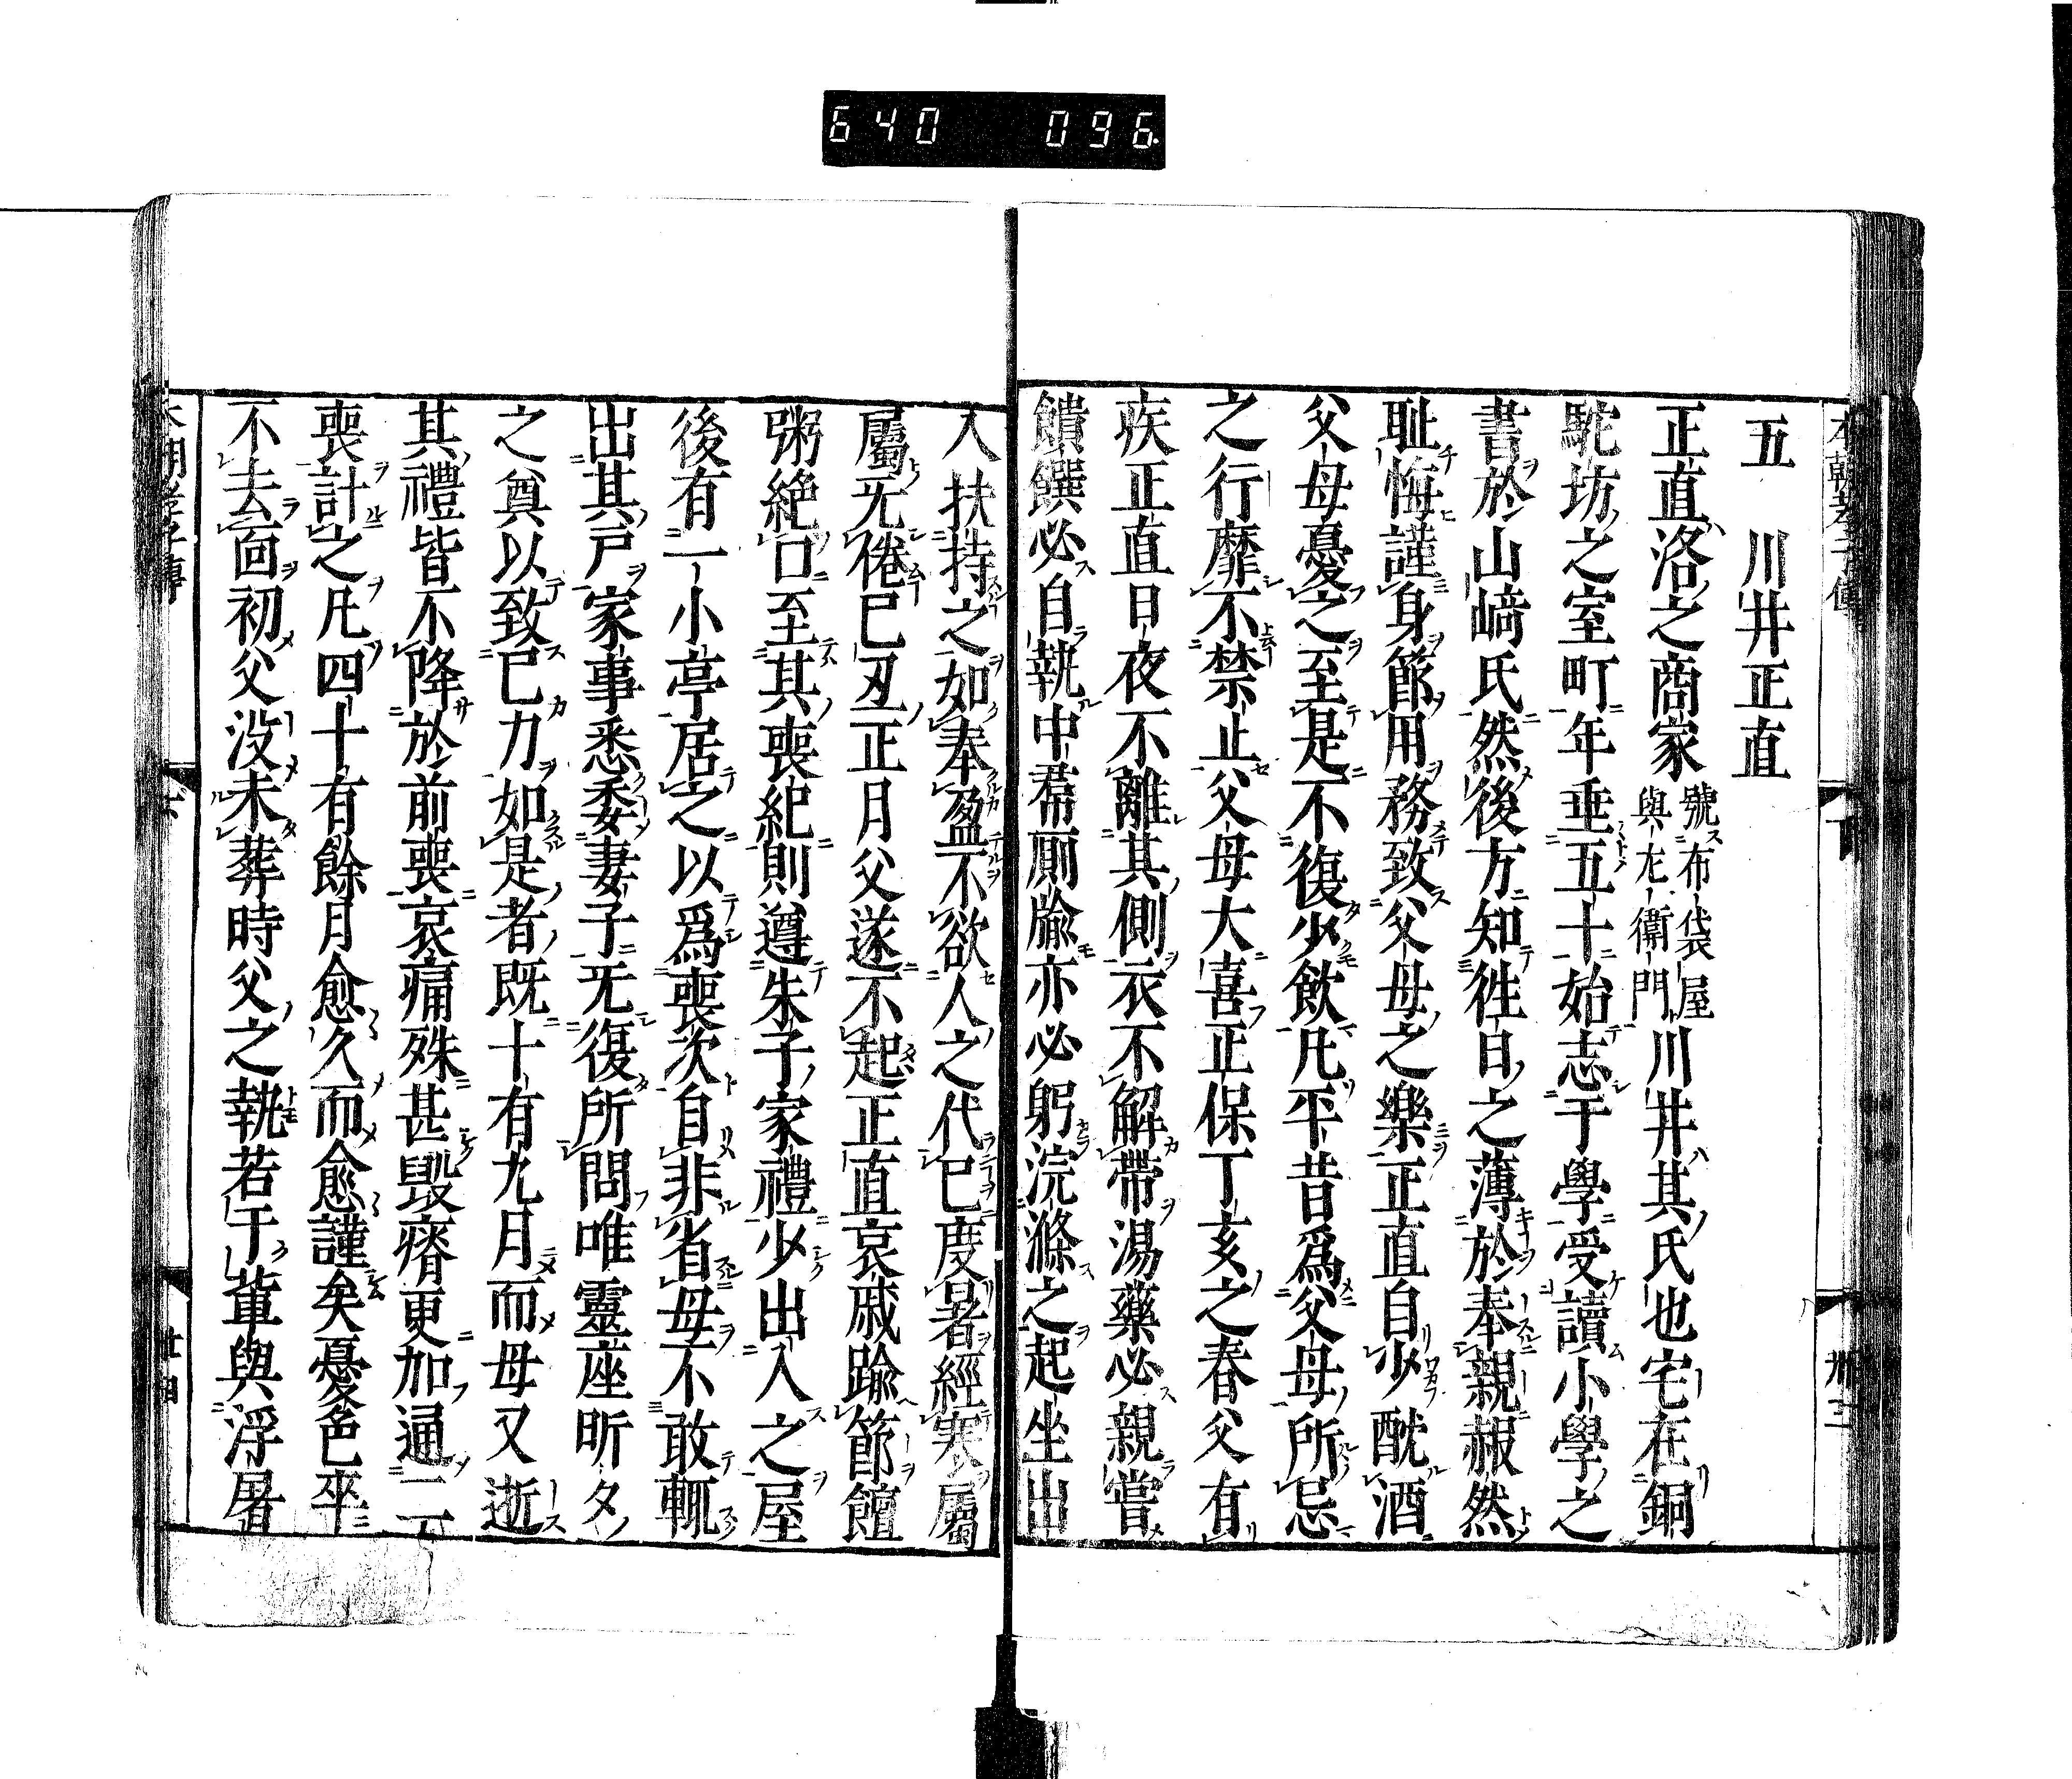 640 096
五 川井正直
正直洛之商家號布袋屋與左衞門川井其氏也宅在銅
駝坊之室町年垂五十始志于學受讀小學之
書於山﨑氏然後方知徃日之薄於奉親赧然
耻悔謹身節用務致父母之樂正直自少酖酒
父母憂之至是不復少飲凡平昔爲父母所忌
之行靡不禁止父母大喜正保丁亥之春父有
疾正直日夜不離其側衣不解帶湯藥必親嘗
饋饌必自執中帬厠牏亦必躬浣滌之起坐出
入扶持之如奉盈不欲人之代已度暑經寒屬
屬无倦已丑正月父遂不起正直哀戚踰節饘
粥絶口至其喪紀則遵朱子家禮少出入之屋
後有一小亭居之以爲喪次自非省母不敢輒
出其戸家事悉委妻子无復所問唯靈座昕夕
之奠以致已力如是者既十有九月而母又逝
其禮皆不降於前喪哀痛殊甚毀瘠更加通二
喪計之凡四十有餘月愈久而愈謹矣憂色卒
不去面初父没未葬時父之執若干輩與浮屠